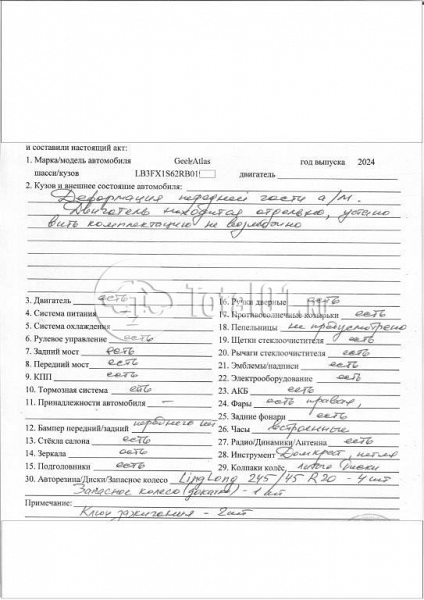 и составили настоящий акт:
1. Марка/модель автомобиля GeelrAtlas год выпуска 2024
шасси/кузов LB3FX1S62RB01 двигатель
2. Кузов и внешнее состояние автомобиля:
Деформация передней части а/м.
Двигатель находится отдельно, устано
вить комплектацию не возможно
3. Двигатель есть
4. Система питания
5. Система охлаждения
6. Рулевое управление есть
7. Задний мост есть
8. Передний мост есть
9. КПП есть
10. Тормозная система есть
11. Принадлежности автомобиля —
12. Бампер передний/задний
13. Стёкла салона есть
14. Зеркала есть
15. Подголовники есть
16. Ручки дверные есть
17. Противосолнечные козырьки есть
18. Пепельницы не предусмотрено
19. Щетки стеклоочистителя есть
20. Рычаги стеклоочистителя есть
21. Эмблемы/надписи есть
22. Электрооборудование есть
23. АКБ есть
24. Фары есть правая,
25. Задние фонари есть
26. Часы встроенные
27. Радио/Динамики/Антенна есть
28. Инструмент Домкрат, петля
29. Колпаки колёс, литые диски
30. Авторезина/Диски/Запасное колесо LingLong 245/45 R20 - 4 шт
Запасное колесо (докатка) - 1 шт
Примечание:
Ключ зажигания - 2шт
Total01.ru